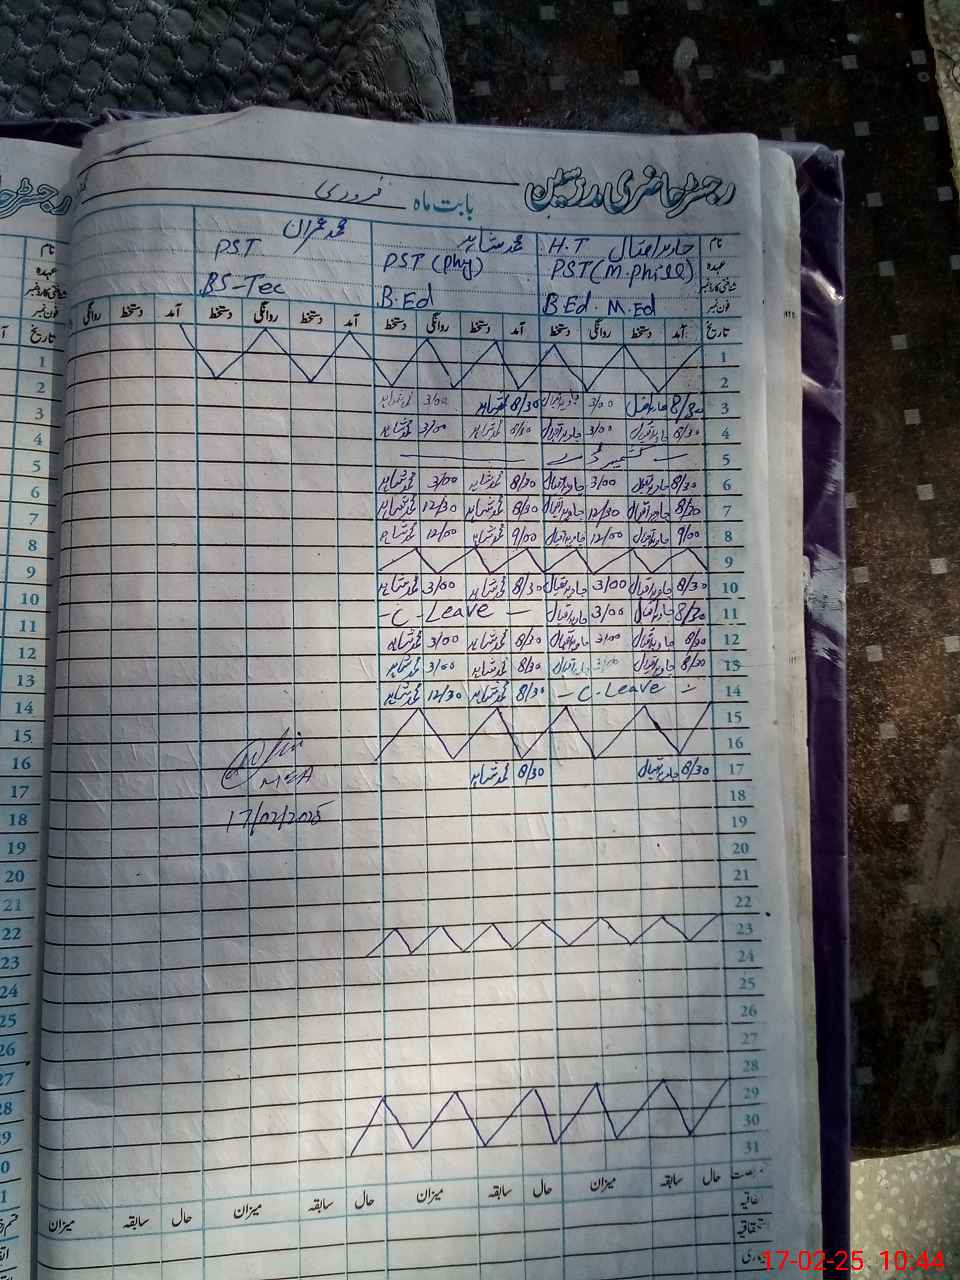 رجسٹر حاضری مدرسین بابت ماہ فروری
نام جاوید اقبال H.T محمد شاہد محمد عمران
عہدہ PST (M.Phill) PST (Phy) PST
شناختی کارڈ نمبر
فون نمبر B.Ed. M.Ed B.Ed BS-Tec
تاریخ آمد دستخط روانگی دستخط آمد دستخط روانگی دستخط آمد دستخط روانگی دستخط آمد دستخط روانگی
1
2
3 8/30 جاوید اقبال 3/00 جاوید اقبال 8/30 محمد شاہد 3/00 محمد شاہد
4 8/30 جاوید اقبال 3/00 جاوید اقبال 8/30 محمد شاہد 3/00 محمد شاہد
5 کشمیر ڈے
6 8/30 جاوید اقبال 3/00 جاوید اقبال 8/30 محمد شاہد 3/00 محمد شاہد
7 8/30 جاوید اقبال 12/30 جاوید اقبال 8/30 محمد شاہد 12/30 محمد شاہد
8 9/00 جاوید اقبال 12/00 جاوید اقبال 9/00 محمد شاہد 12/00 محمد شاہد
9
10 8/30 جاوید اقبال 3/00 جاوید اقبال 8/30 محمد شاہد 3/00 محمد شاہد
11 8/30 جاوید اقبال 3/00 جاوید اقبال - C-Leave -
12 8/30 جاوید اقبال 3/00 جاوید اقبال 8/30 محمد شاہد 3/00 محمد شاہد
13 8/30 جاوید اقبال 3/00 جاوید اقبال 8/30 محمد شاہد 3/00 محمد شاہد
14 - C-Leave - 8/30 محمد شاہد 12/30 محمد شاہد
15
16
17 8/30 جاوید اقبال 8/30 محمد شاہد
MEA
17/02/2025
18
19
20
21
22
23
24
25
26
27
28
29
30
31
حال سابقہ میزان حال سابقہ میزان حال سابقہ میزان حال سابقہ میزان
اتفاقیہ
استحقاقیہ
17-02-25 10:44